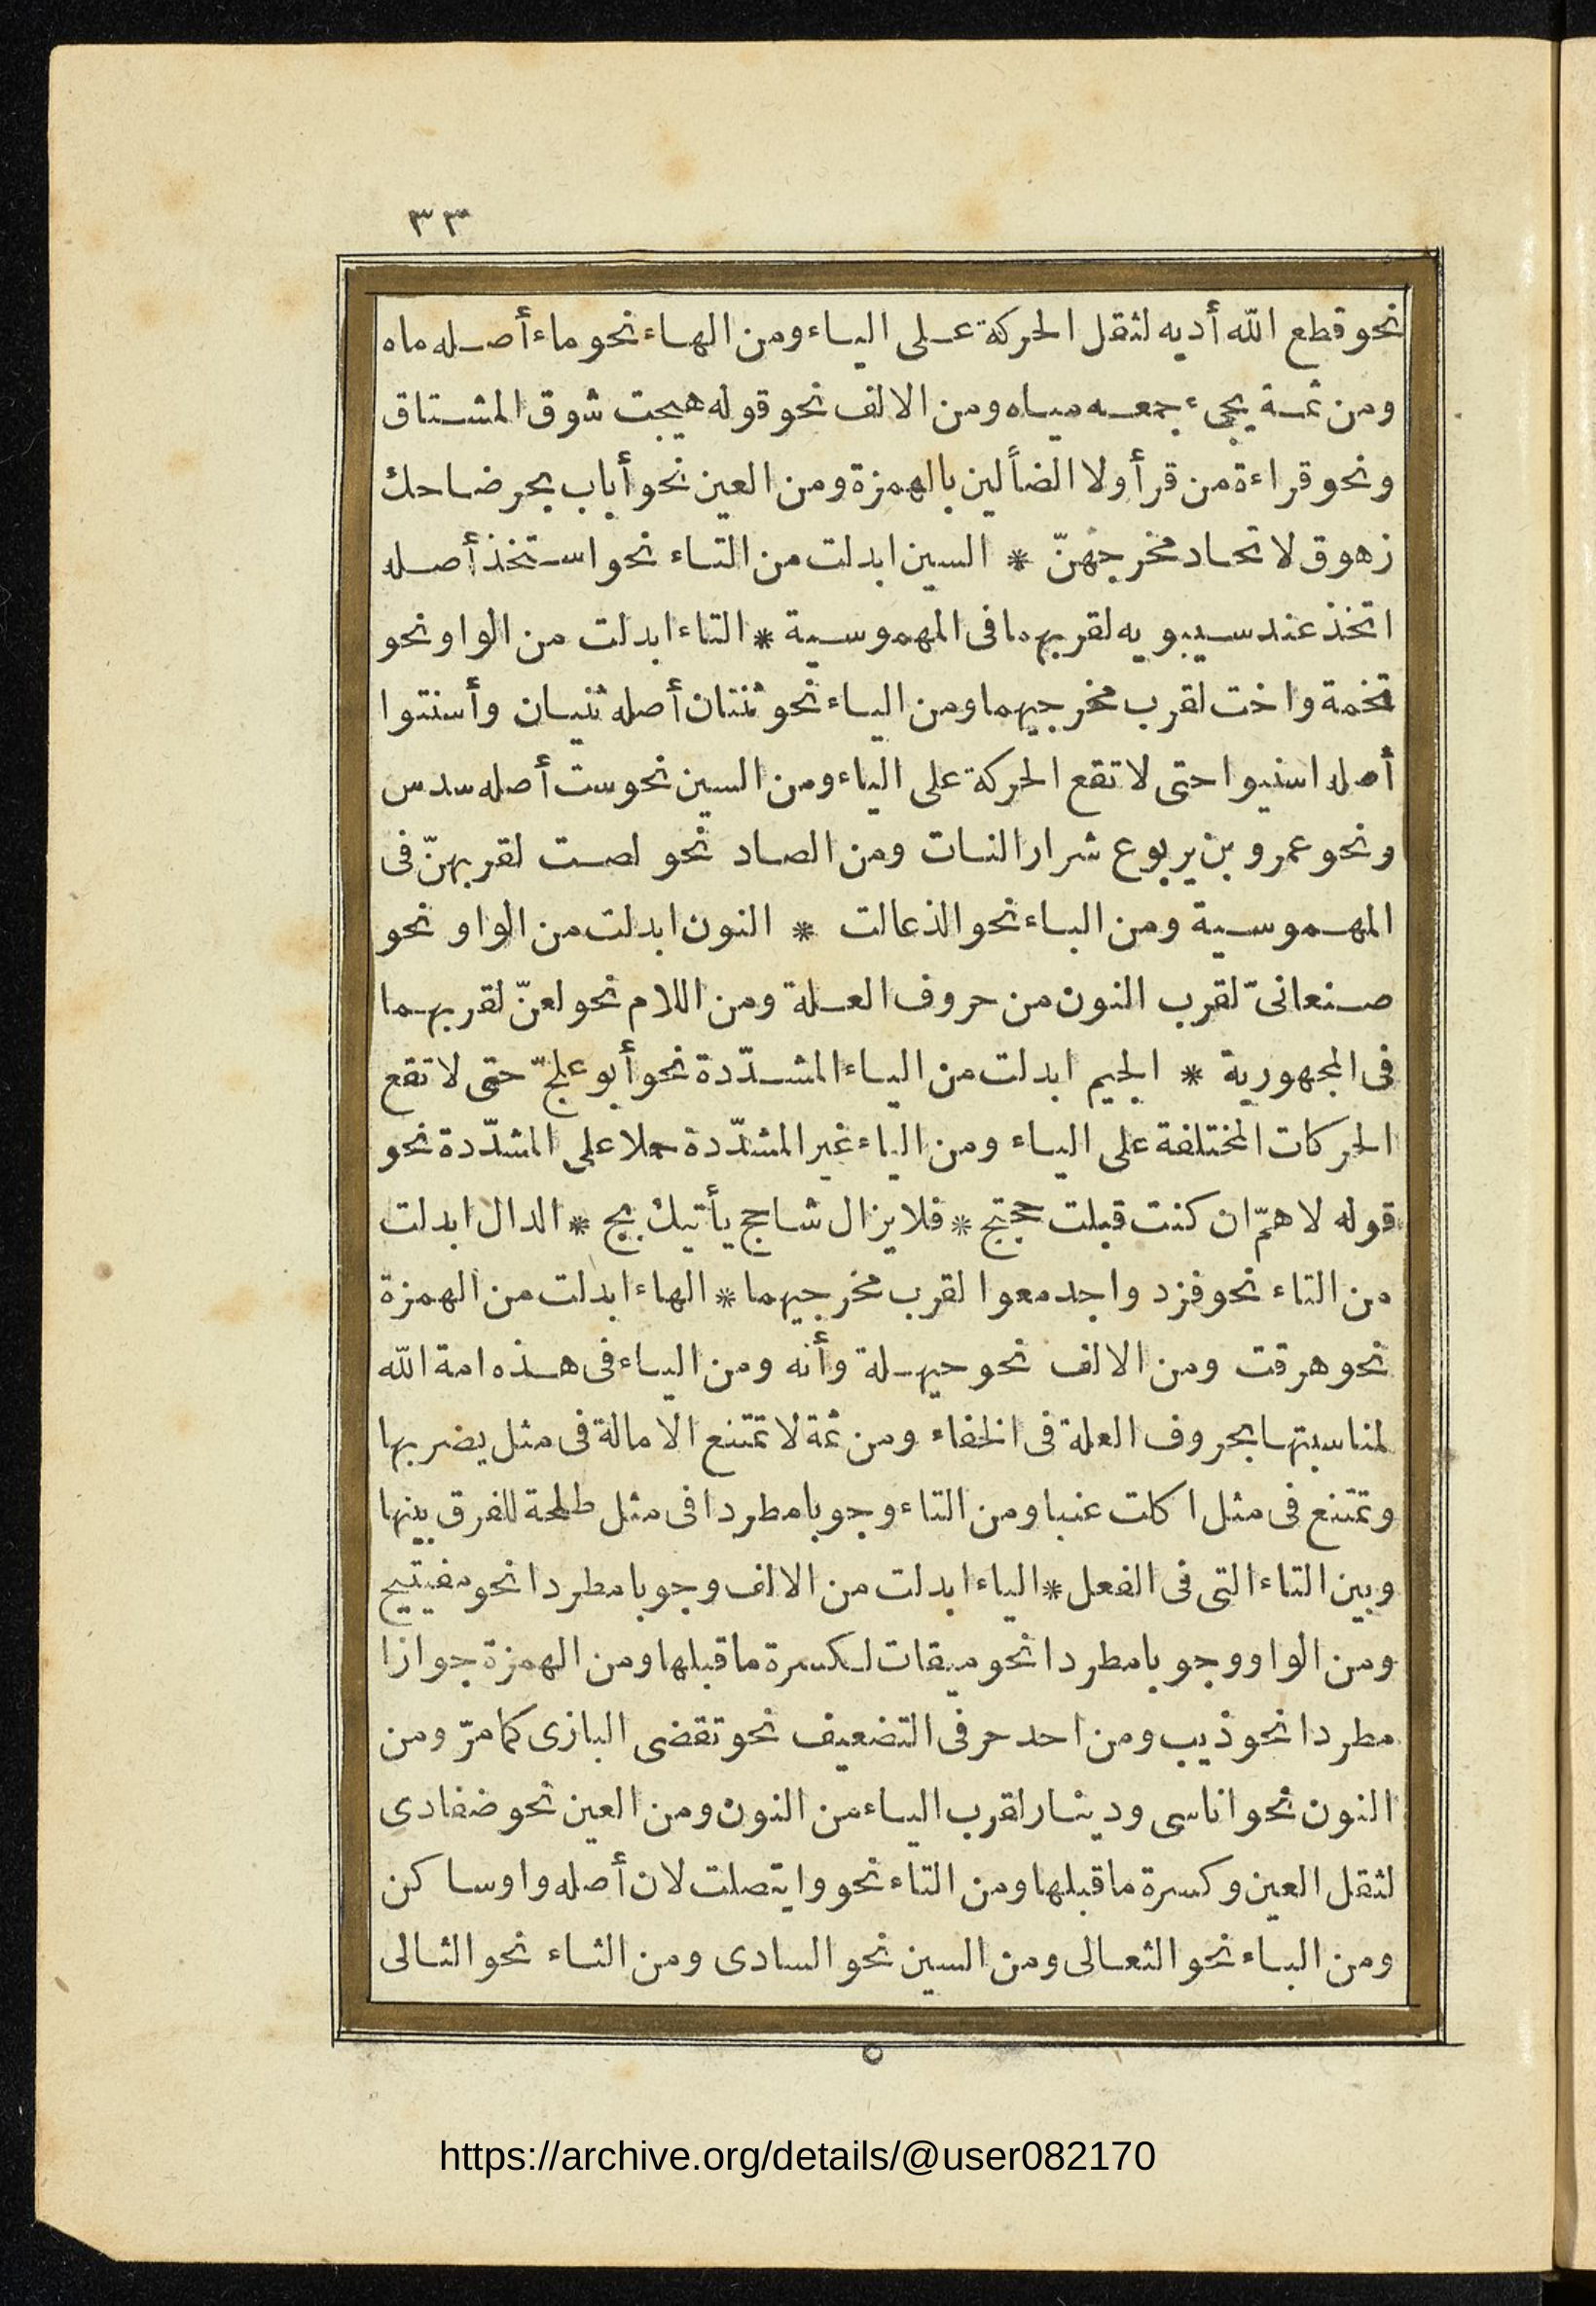 ٣٣
نحو قطع الله أديه لثقل الحركة على الياء ومن الهاء نحو ماء أصله ماه
ومن ثمة يجىء جمعه مياه ومن الالف نحو قوله هيجت شوق المشتاق
ونحو قراءة من قرأ ولا الضألين بالهمزة ومن العين نحو أباب بحر ضاحك
زهوق لاتحاد مخرجهنّ * السين ابدلت من التاء نحو استخذ أصله
اتخذ عند سيبويه لقربهما فى المهموسية * التاء ابدلت من الواو نحو
تخمة واخت لقرب مخرجيهما ومن الياء نحو ثنتان أصله ثنيان وأسنتوا
أصله اسنيوا حتى لا تقع الحركة على الياء ومن السين نحو ست أصله سدس
ونحو عمرو بن يربوع شرار النات ومن الصاد نحو لصت لقربهنّ فى
المهموسية ومن الباء نحو الذعالت * النون ابدلت من الواو نحو
صنعانىّ لقرب النون من حروف العلة ومن اللام نحو لعنّ لقربهما
فى المجهورية * الجيم ابدلت من الياء المشدّدة نحو أبو علجّ حتى لا تقع
الحركات المختلفة على الياء ومن الياء غير المشدّدة حملا على المشدّدة نحو
قوله لاهمّ ان كنت قبلت حجتج * فلا يزال شاحج يأتيك بج * الدال ابدلت
من التاء نحو فزد واجدمعوا لقرب مخرجيهما * الهاء ابدلت من الهمزة
نحو هرقت ومن الالف نحو حيهله وأنه ومن الياء فى هذه امة الله
لمناسبتها بحروف العلة فى الخفاء ومن ثمة لا تمتنع الامالة فى مثل يضربها
وتمتنع فى مثل اكلت عنبا ومن التاء وجوبا مطردا فى مثل طلحة للفرق بينها
وبين التاء التى فى الفعل * الياء ابدلت من الالف وجوبا مطردا نحو مفيتيح
ومن الواو وجوبا مطردا نحو ميقات لكسرة ما قبلها ومن الهمزة جوازا
مطردا نحو ذيب ومن احد حرفى التضعيف نحو تقضى البازى كما مرّ ومن
النون نحو اناسى ودينار لقرب الياء من النون ومن العين نحو ضفادى
لثقل العين وكسرة ما قبلها ومن التاء نحو وايتصلت لان أصله واو ساكن
ومن الباء نحو الثعالى ومن السين نحو السادى ومن الثاء نحو الثالى
https://archive.org/details/@user082170